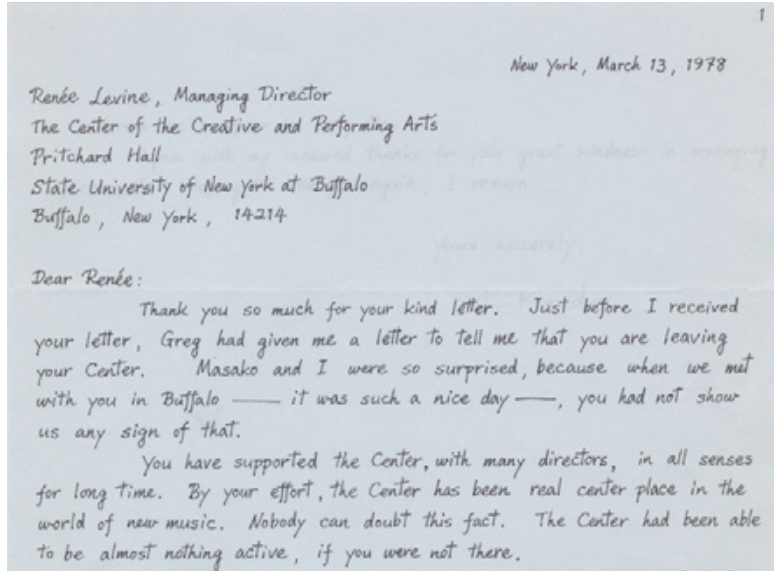 1
New York, March 13, 1978
Renée Levine, Managing Director
The Center of the Creative and Performing Arts
Pritchard Hall
State University of New York at Buffalo
Buffalo, New York, 14214
Dear Renée:
Thank you so much for your kind letter. Just before I received
your letter, Greg had given me a letter to tell me that you are leaving
your Center. Masako and I were so surprised, because when we met
with you in Buffalo —— it was such a nice day ——, you had not show
us any sign of that.
You have supported the Center, with many directors, in all senses
for long time. By your effort, the Center has been real center place in the
world of new music. Nobody can doubt this fact. The Center had been able
to be almost nothing active, if you were not there.